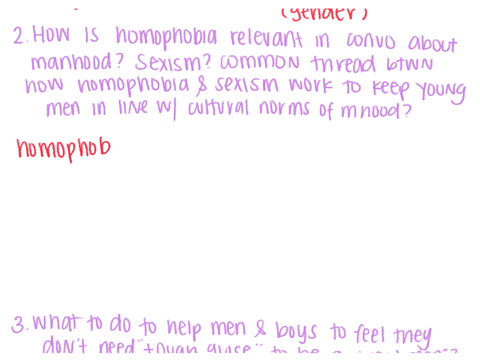 (gender)
2. How is homophobia relevant in convo about
manhood? Sexism? common thread btwn
how homophobia & sexism work to keep young
men in line w/ cultural norms of mhood?
homophob
3. what to do to help men & boys to feel they
don't need "tough guise" to be a